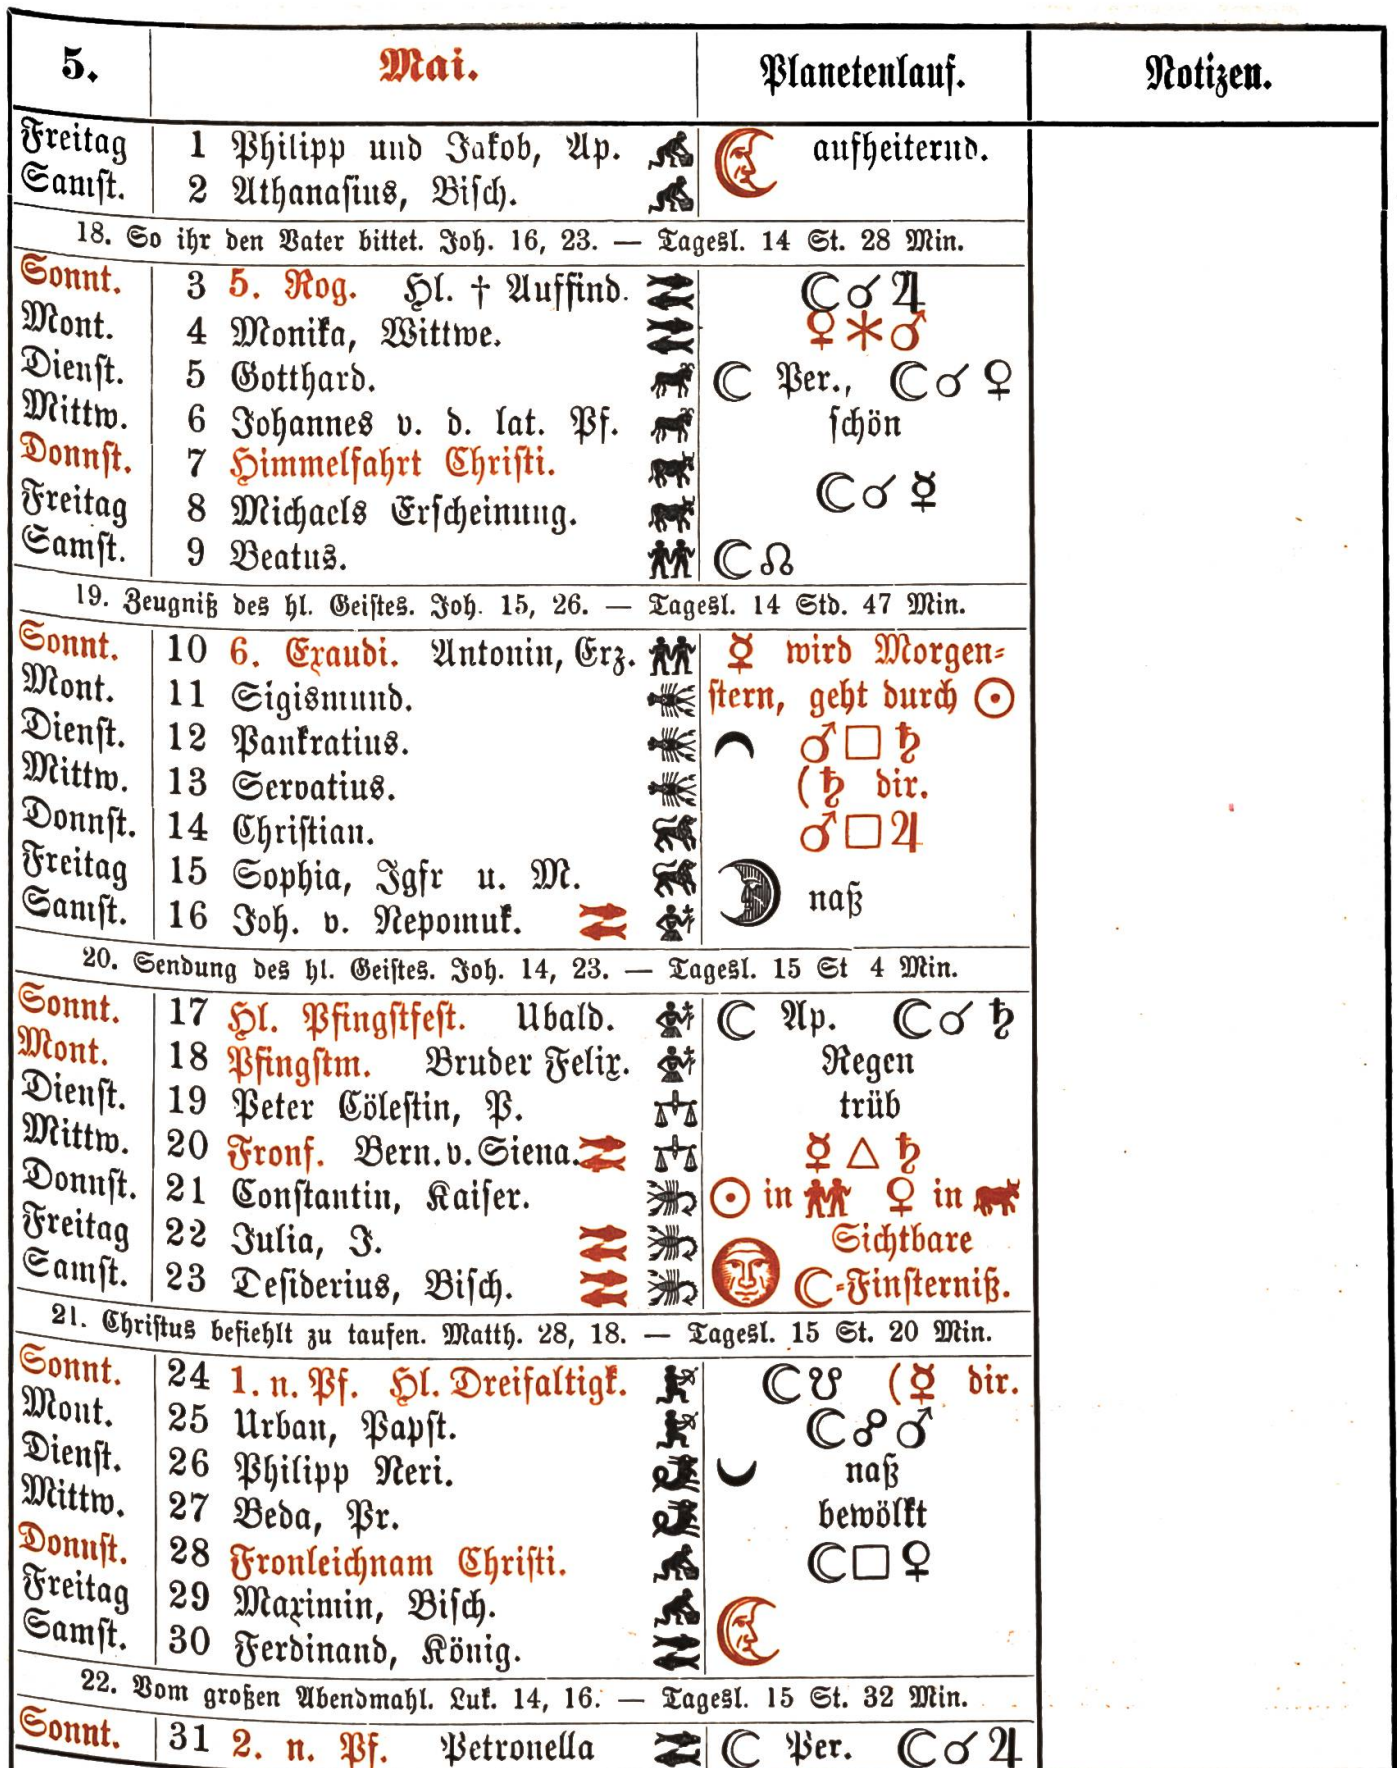 5. Mai. Planetenlauf. Notizen.
Freitag 1 Philipp und Jakob, Ap. aufheiternd.
Samst. 2 Athanasius, Bisch.
18. So ihr den Vater bittet. Joh. 16, 23. — Tagesl. 14 St. 28 Min.
Sonnt. 3 5. Rog. Hl. † Auffind. ☾☌♃
Mont. 4 Monika, Wittwe. ♀⚹♂
Dienst. 5 Gotthard. ☾ Per., ☾☌♀
Mittw. 6 Johannes v. d. lat. Pf. schön
Donnst. 7 Himmelfahrt Christi.
Freitag 8 Michaels Erscheinung. ☾☌☿
Samst. 9 Beatus. ☾☊
19. Zeugniß des hl. Geistes. Joh. 15, 26. — Tagesl. 14 Std. 47 Min.
Sonnt. 10 6. Exaudi. Antonin, Erz. ☿ wird Morgen-
Mont. 11 Sigismund. stern, geht durch ☉
Dienst. 12 Pankratius. ♂□♄
Mittw. 13 Servatius. (♄ dir.
Donnst. 14 Christian. ♂□♃
Freitag 15 Sophia, Igfr u. M. naß
Samst. 16 Joh. v. Nepomuk.
20. Sendung des hl. Geistes. Joh. 14, 23. — Tagesl. 15 St 4 Min.
Sonnt. 17 Hl. Pfingstfest. Ubald. ☾ Ap. ☾☌♄
Mont. 18 Pfingstm. Bruder Felix. Regen
Dienst. 19 Peter Cölestin, P. trüb
Mittw. 20 Fronf. Bern. v. Siena. ☿△♄
Donnst. 21 Constantin, Kaiser. ☉ in ♊ ♀ in ♉
Freitag 22 Julia, J. Sichtbare
Samst. 23 Desiderius, Bisch. ☾-Finsterniß.
21. Christus befiehlt zu taufen. Matth. 28, 18. — Tagesl. 15 St. 20 Min.
Sonnt. 24 1. n. Pf. Hl. Dreifaltigk. ☾☋ (☿ dir.
Mont. 25 Urban, Papst. ☾☍♂
Dienst. 26 Philipp Neri. naß
Mittw. 27 Beda, Pr. bewölkt
Donnst. 28 Fronleichnam Christi. ☾□♀
Freitag 29 Maximin, Bisch.
Samst. 30 Ferdinand, König.
22. Vom großen Abendmahl. Luk. 14, 16. — Tagesl. 15 St. 32 Min.
Sonnt. 31 2. n. Pf. Petronella ☾ Per. ☾☌♃